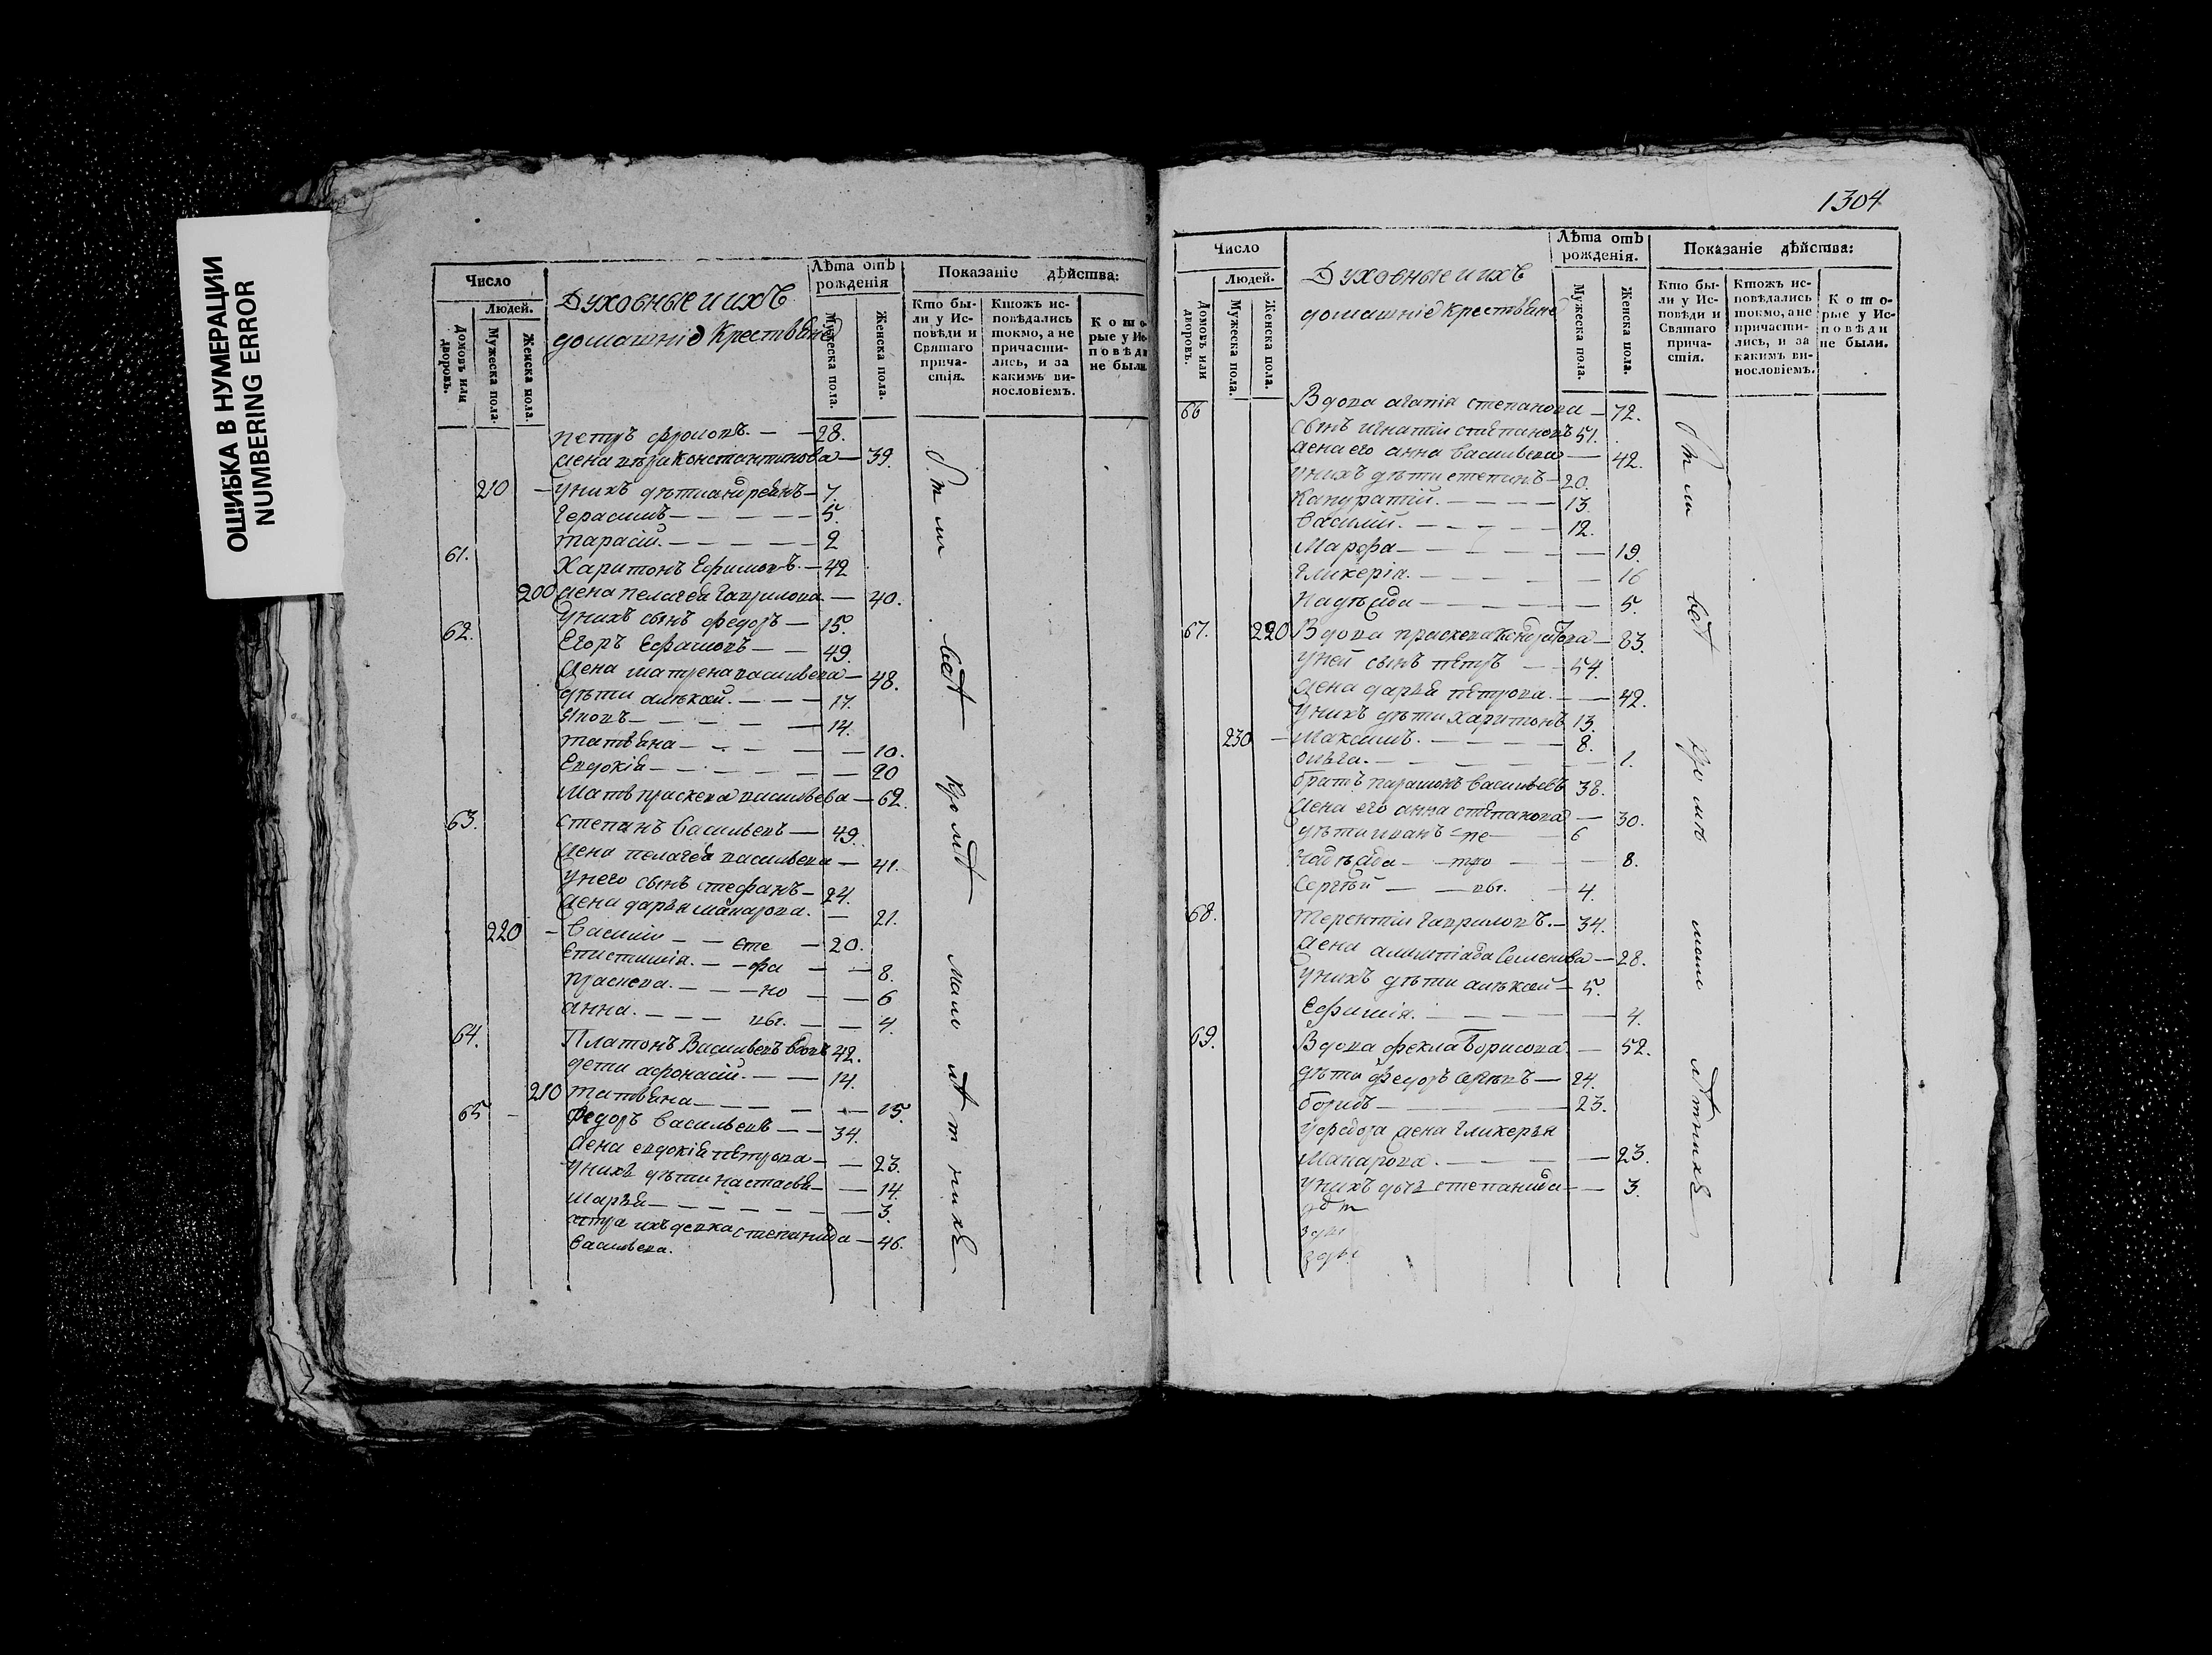 ОШИБКА В НУМЕРАЦИИ
NUMBERING ERROR
Число
Людей.
Домовъ или дворовъ.
Мужеска пола.
Женска пола.
Духовные и ихъ
домашнiе крестьяне
Лѣта отъ рожденiя
Мужеска пола.
Женска пола.
Показанiе дѣйства:
Кто бы-
ли у Ис-
повѣди и
Святаго
прича-
стiя.
Ктожъ ис-
повѣдались
токмо, а не
причасти-
лись, и за
какимъ ви-
нословiемъ.
Кото-
рые у Ис-
повѣди
не были.
петръ фроловъ. — 28.
жена вѣра константинова — 39.
210 — у нихъ дѣти андреянъ — 7.
герасимъ — 5.
тарасiй. — 2
61. Харитонъ Ефимовъ. — 42
200 жена пелагея гаврилова — 40.
у нихъ сынъ федоръ — 15.
62. Егоръ Ефимовъ — 49.
жена матрена васильева — 48.
дѣти алѣксей. — 17.
яковъ — 14.
татьяна — 10.
Евдокiя — 20
мать праскева васильева — 62.
63. степанъ васильевъ — 49.
жена пелагея васильева — 41.
у него сынъ стефанъ — 24.
жена дарья макарова. — 21.
220 — василiи — сте — 20.
епистимiя. — фа — 8.
праскева. — но — 6
анна. — вы. — 4.
64. Платонъ Васильевъ вдовъ 42.
дети афонасiй. — 14.
210 татьяна — 15.
65 — федоръ васильевъ — 34.
жена евдокiя петрова — 23.
у нихъ дѣти настасья — 14.
марья — 3.
сестра ихъ девка степанида — 46.
васильева.
1304
Число
Людей.
Домовъ или дворовъ.
Мужеска пола.
Женска пола.
Духовные и ихъ
домашнiе крестьяне
Лѣта отъ рожденiя.
Мужеска пола.
Женска пола.
Показанiе дѣйства:
Кто бы-
ли у Ис-
повѣди и
Святаго
прича-
стiя.
Ктожъ ис-
повѣдались
токмо, а не
причасти-
лись, и за
какимъ ви-
нословiемъ.
Кото-
рые у Ис-
повѣди
не были.
66 Вдова агапiя степанова — 72.
сынъ игнатiи степановъ 51.
жена его анна васильева — 42.
у нихъ дѣти степанъ — 20.
василiй. — 12.
марфа — 19.
гликерiя. — 16
надѣжда — 5.
67. 220 Вдова праскева кондратова — 83.
у ней сынъ петръ — 54.
жена дарья петрова. — 42.
у нихъ дѣти харитонъ 13.
230 — максимъ. — 8.
ольга. — 1.
братъ парамонъ васильевъ 38.
жена его анна степанова — 30.
дѣти иванъ — пе — 6
надѣжда — тро — 8.
сергѣй — вы. — 4.
68. терентiи гавриловъ. — 34.
жена алимпiада семенова — 28.
у нихъ дѣти алѣксей — 5.
Ефимiя. — 4.
69. Вдова фекла борисова — 52.
дѣти федоръ — 24.
борисъ — 23.
у федора жена гликерья
макарова. — 23.
у нихъ дочь степанида — 3.